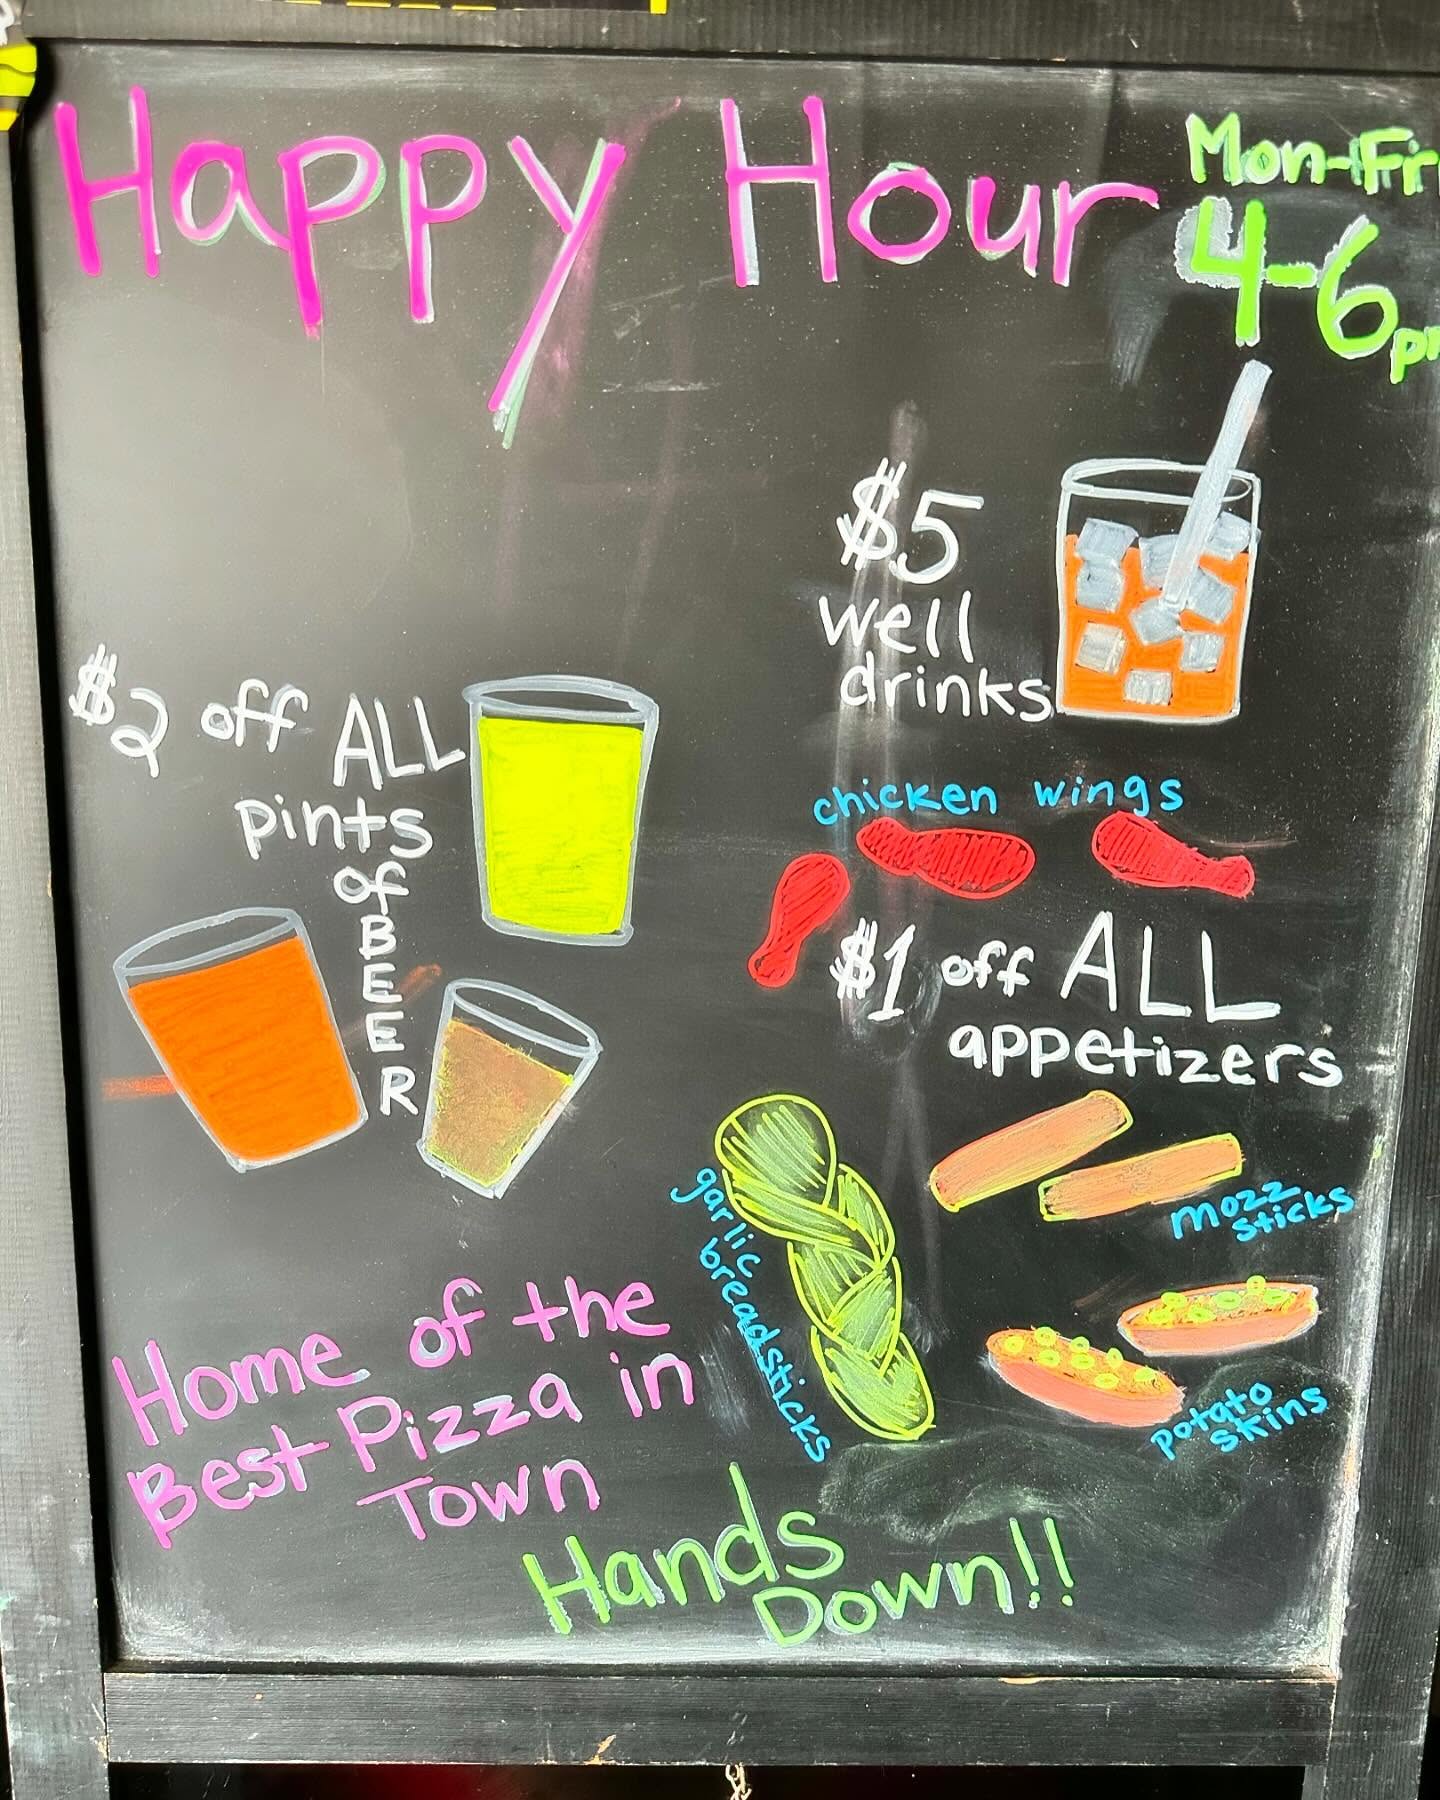 Happy Hour
Mon-Fri
4-6pm
$5
well
drinks
$2 off ALL
pints
of
BEER
chicken wings
$1 off ALL
appetizers
garlic
breadsticks
mozz
sticks
potato
skins
Home of the
Best Pizza in
Town
Hands
Down!!